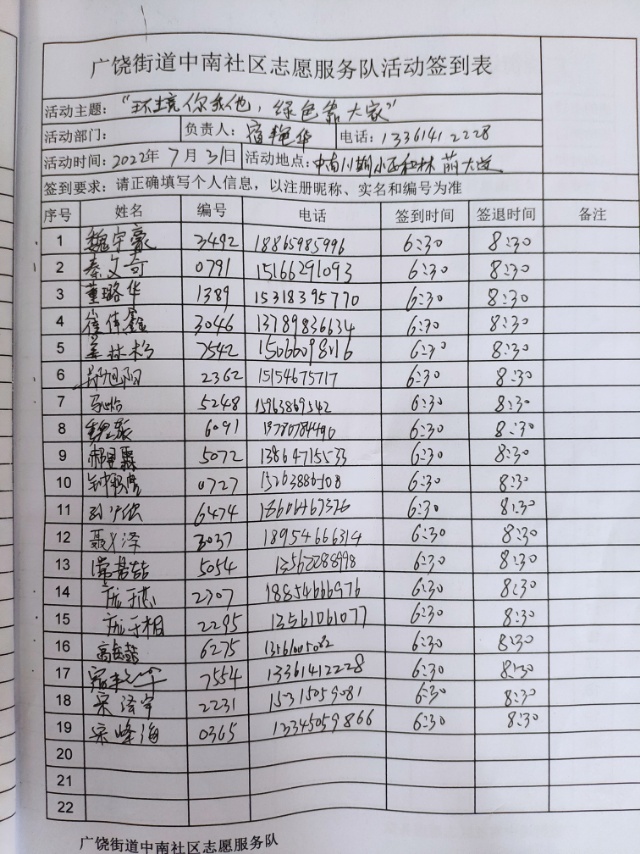 广饶街道中南社区志愿服务队活动签到表
活动主题：“环境你我他，绿色靠大家”
活动部门： 负责人：宿艳华 电话：13361412228
活动时间：2022年7月31日 活动地点：中南 小区和林 前大道
签到要求：请正确填写个人信息，以注册昵称、实名和编号为准
序号 姓名 编号 电话 签到时间 签退时间 备注
1 魏宇豪 3492 18865985996 6:30 8:30
2 秦文奇 0791 15166291093 6:30 8:30
3 董璐华 1389 15318395770 6:30 8:30
4 崔佳鑫 3046 13789836634 6:30 8:30
5 林杉 7542 6:30 8:30
6 2362 15154675717 6:30 8:30
7 5248 15963869542 6:30 8:30
8 6091 6:30 8:30
9 5072 13864715533 6:30 8:30
10 0727 6:30 8:30
11 6474 6:30 8:30
12 聂义泽 3037 18954666314 6:30 8:30
13 5054 13562288998 6:30 8:30
14 2307 18854666976 6:30 8:30
15 2295 13561061077 6:30 8:30
16 6275 6:30 8:30
17 7554 13361412228 6:30 8:30
18 宋泽宇 2231 15315059081 6:30 8:30
19 宋峰海 0365 13345059866 6:30 8:30
20
21
22
广饶街道中南社区志愿服务队